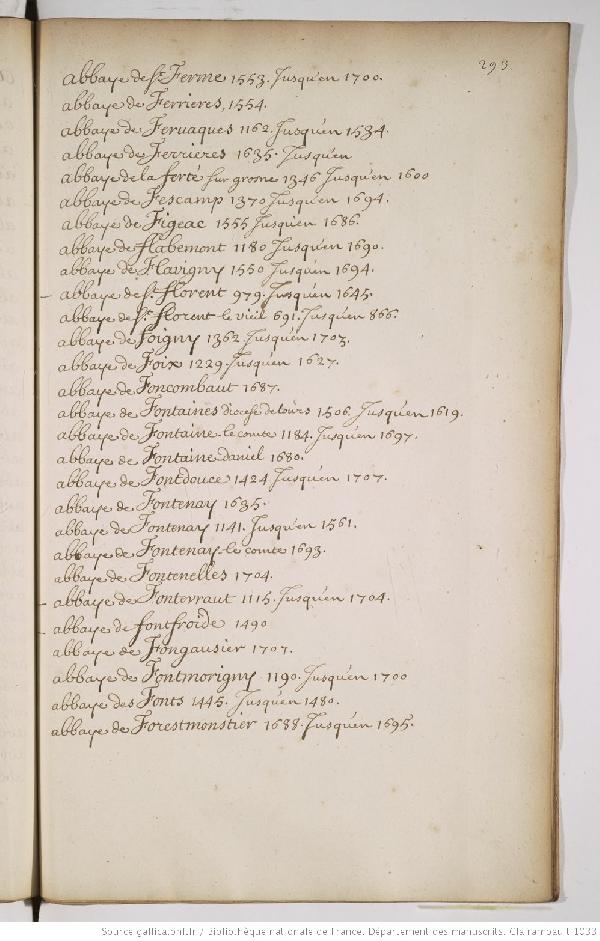 293
abbaye de St Ferme 1553. Jusqu'en 1700.
abbaye de Ferrieres, 1554.
abbaye de Fervaques 1162 Jusqu'en 1534.
abbaye de Ferrieres 1635. Jusqu'en
abbaye de la ferté sur grone 1346 Jusqu'en 1600
abbaye de Fescamp 1370 Jusqu'en 1694.
abbaye de Figeac 1555 Jusqu'en 1686.
abbaye de flabemont 1180 Jusqu'en 1690.
abbaye de Flavigny 1550 Jusqu'en 1694.
abbaye de St florent 979. Jusqu'en 1645.
abbaye de St florent le vieil 691. Jusqu'en 866.
abbaye de foigny 1362. Jusqu'en 1703.
abbaye de Foix 1229. Jusqu'en 1627.
abbaye de Foncombaut 1687.
abbaye de Fontaines diocese de tours 1506. Jusqu'en 1619.
abbaye de Fontaine-le comte 1184. Jusqu'en 1697.
abbaye de Fontaine daniel 1680.
abbaye de Fontdouce 1424 Jusqu'en 1707.
abbaye de Fontenay 1635.
abbaye de Fontenay 1141. Jusqu'en 1561.
abbaye de Fontenay-le comte 1693.
abbaye de Fontenelles 1704.
abbaye de Fontevraut 1115. Jusqu'en 1704.
abbaye de fontfroide 1490
abbaye de Fongausier 1707.
abbaye de Fontmorigny 1190. Jusqu'en 1700
abbaye des Fonts 1445. Jusqu'en 1480.
abbaye de Forestmonstier 1688. Jusqu'en 1695.
Source gallica.bnf.fr / Bibliothèque nationale de France. Département des manuscrits. Clairambault 1033